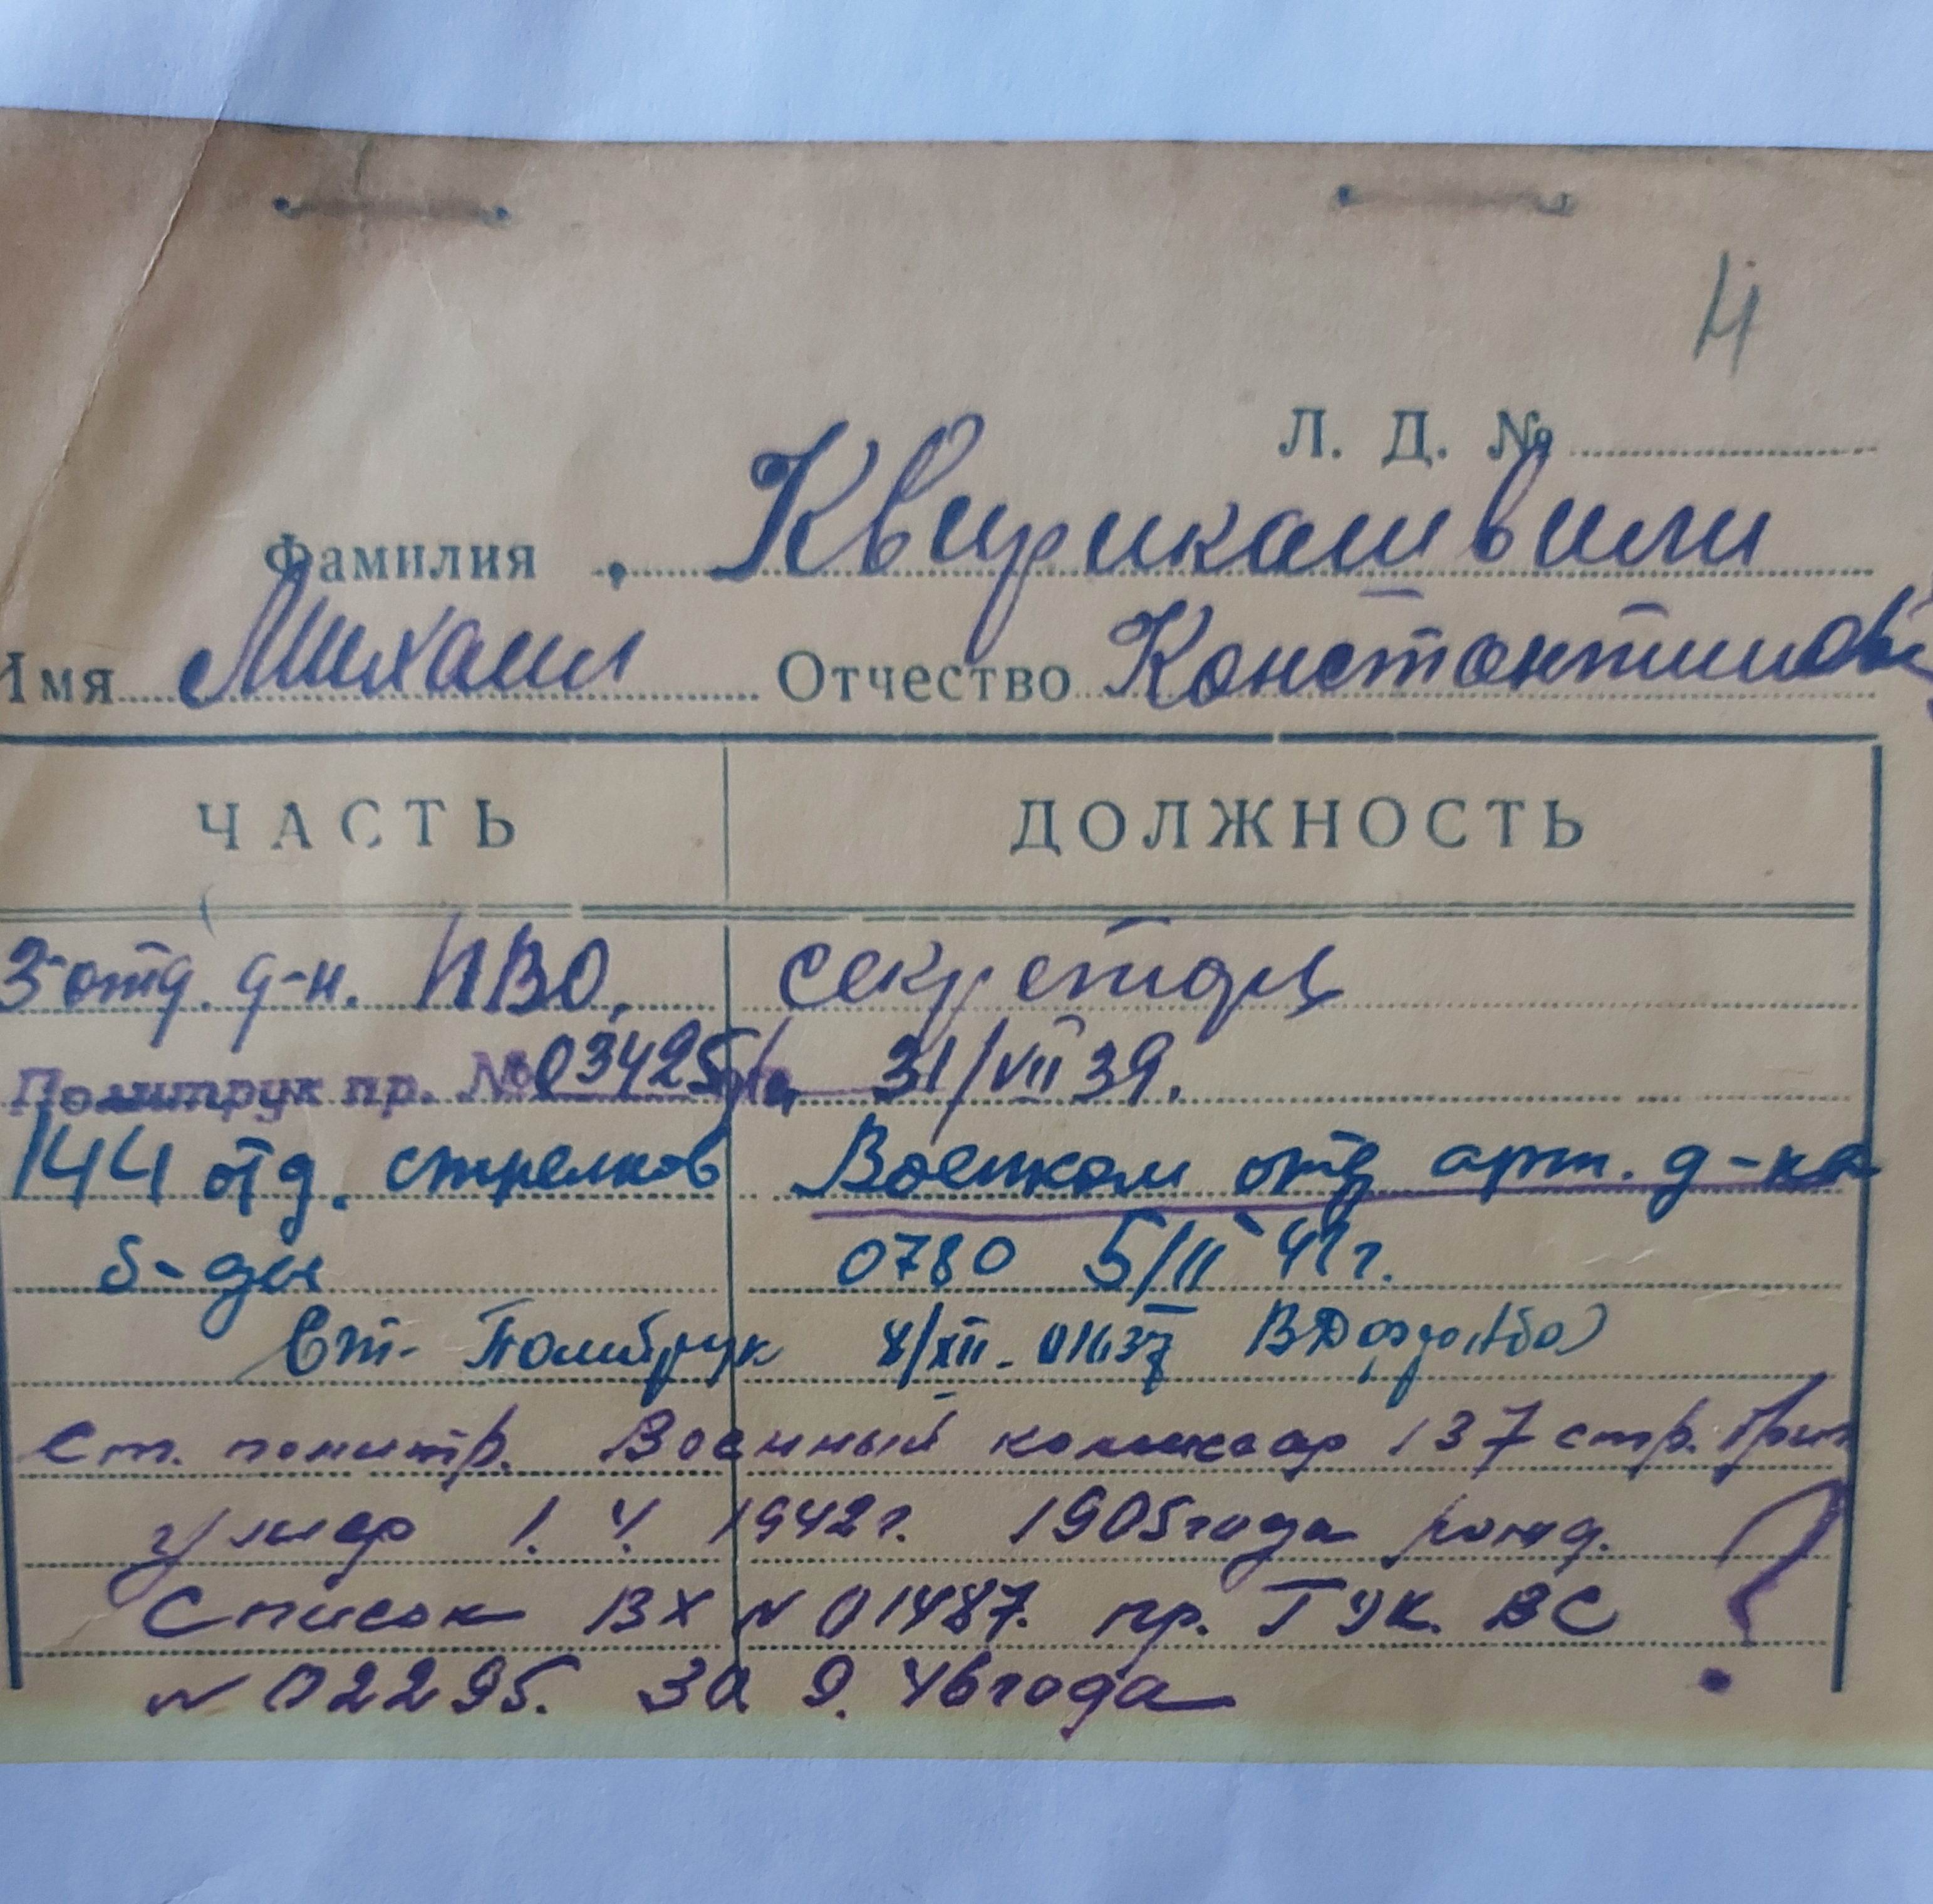 4
Л. Д. №
Фамилия Квирикашвили
Имя Михаил Отчество Константинов
ЧАСТЬ ДОЛЖНОСТЬ
3 отд. д-н. ПВО. секретарь
Политрук пр. № 03425/п 31/VII 39.
144 отд. стрелков Военком отд арт. д-на
б-ды 0780 5/II 41 г.
Ст. Политрук 4/XII - 01637
Ст. политр. Военный комиссар 137 стр.
умер 1. V. 1942 г. 1905 года рожд. ?
Список ВХ N 01487. пр. ГУК. ВС
N 02295. за 9. 46 года